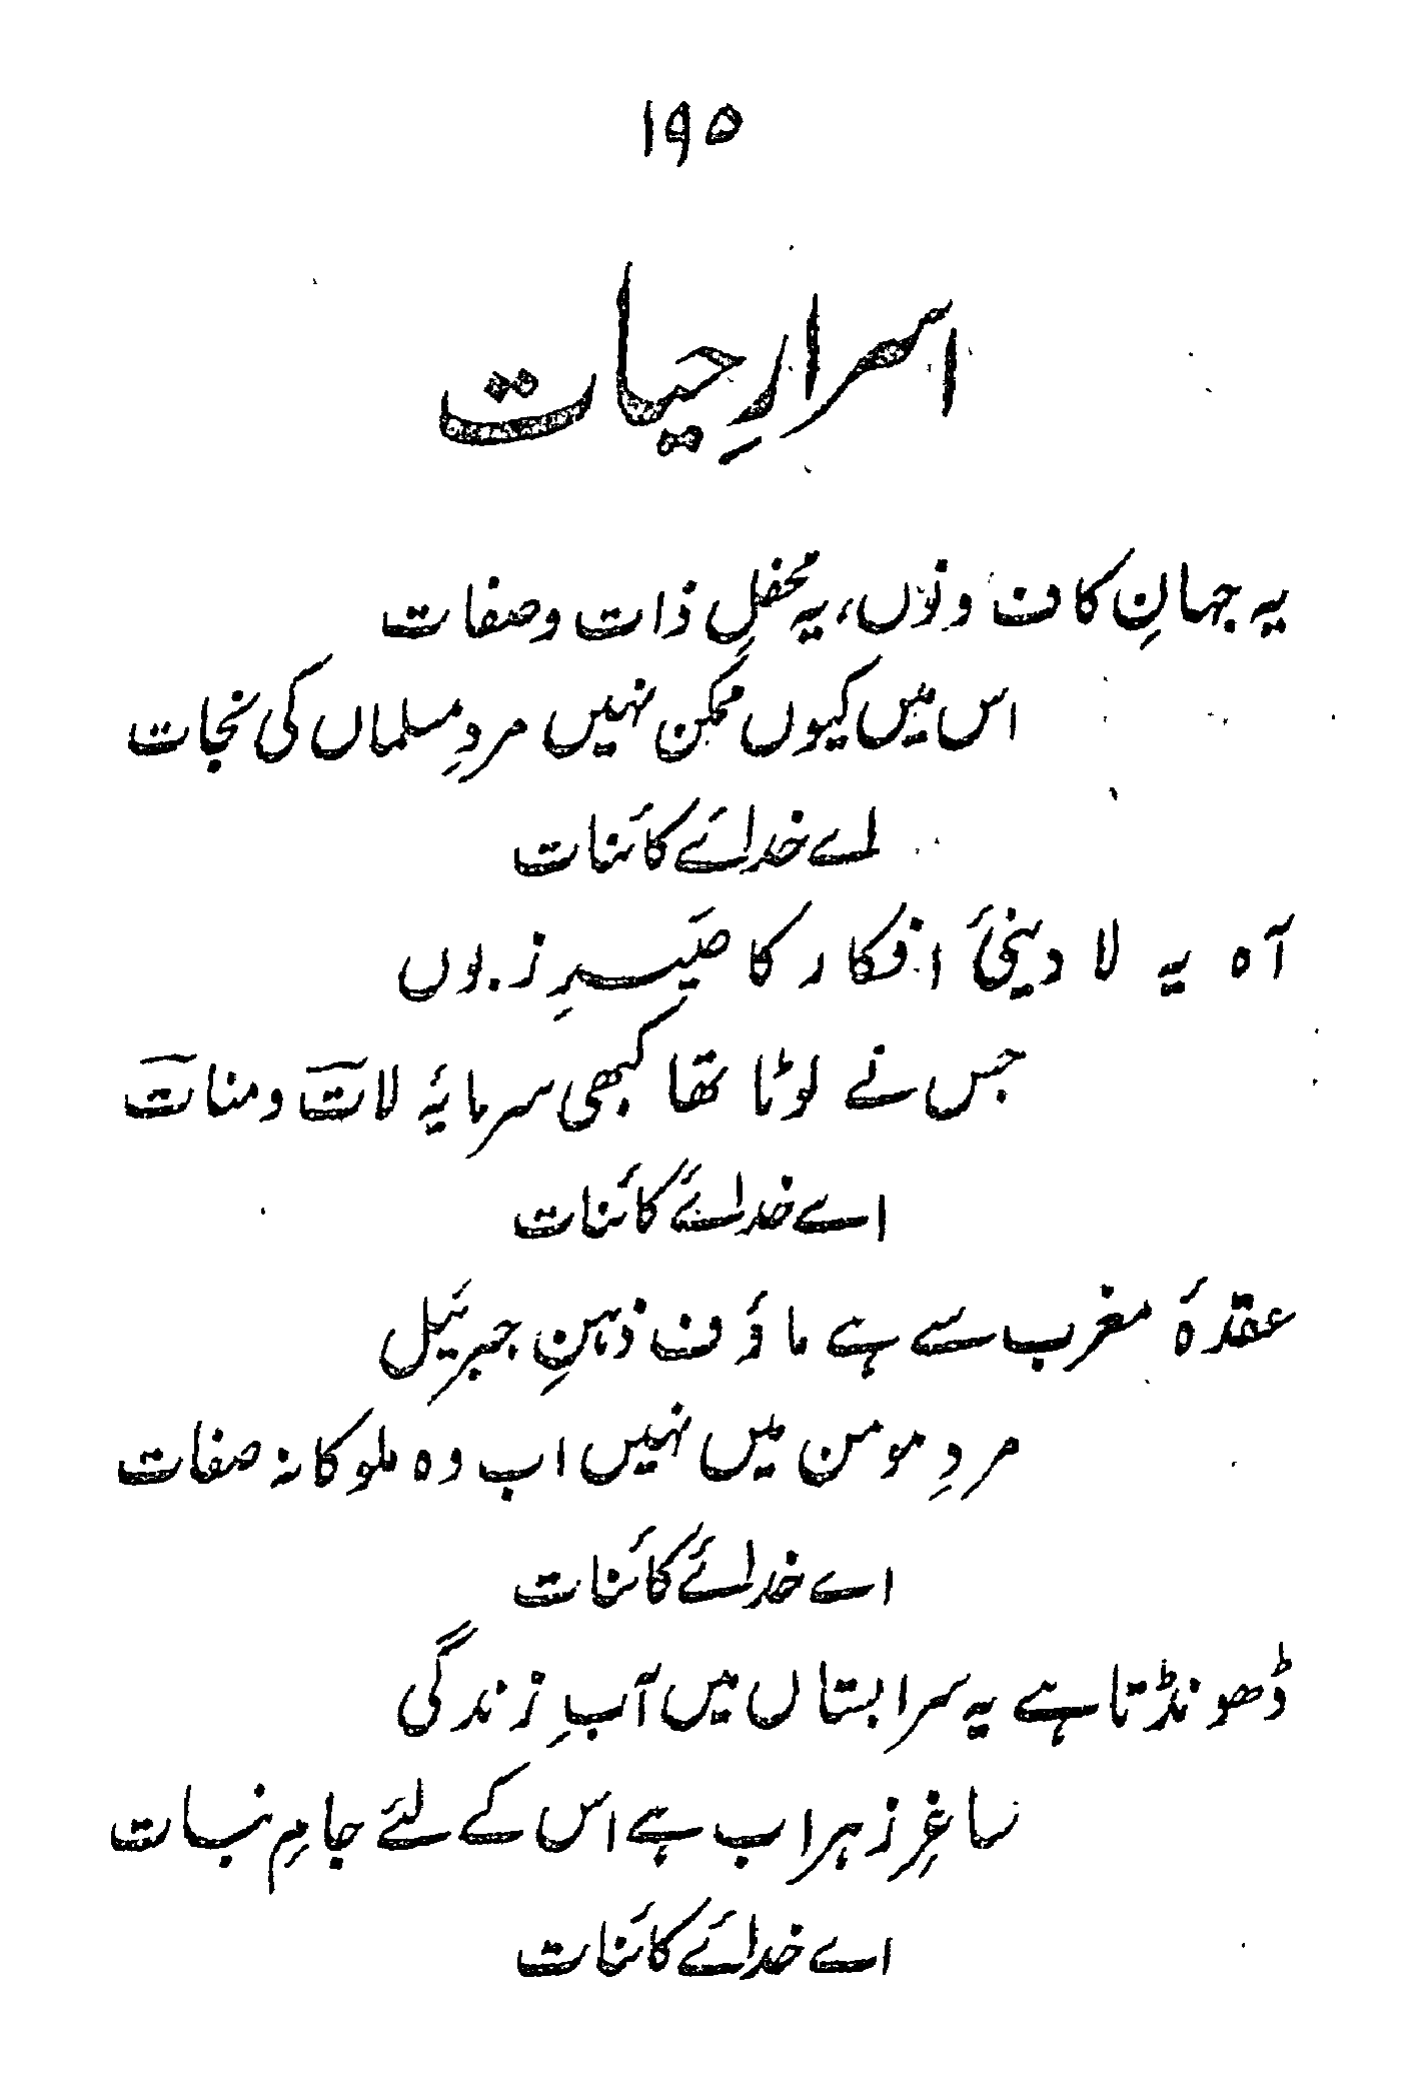 ۱۹۵
اسرارِ حیات
یہ جہانِ کاف و نوں، یہ محفلِ ذات و صفات
اس میں کیوں ممکن نہیں مردِ مسلماں کی نجات
اے خدائے کائنات
آہ یہ لا دینیٔ افکار کا صیدِ زبوں
جس نے لوٹا تھا کبھی سرمایۂ لات و منات
اے خدائے کائنات
عقدۂ مغرب سے ہے ماؤف ذہنِ جبرئیل
مردِ مومن میں نہیں اب وہ ملوکانہ صفات
اے خدائے کائنات
ڈھونڈتا ہے یہ سرابستاں میں آبِ زندگی
ساغرِ زہراب ہے اس کے لئے جامِ نبات
اے خدائے کائنات